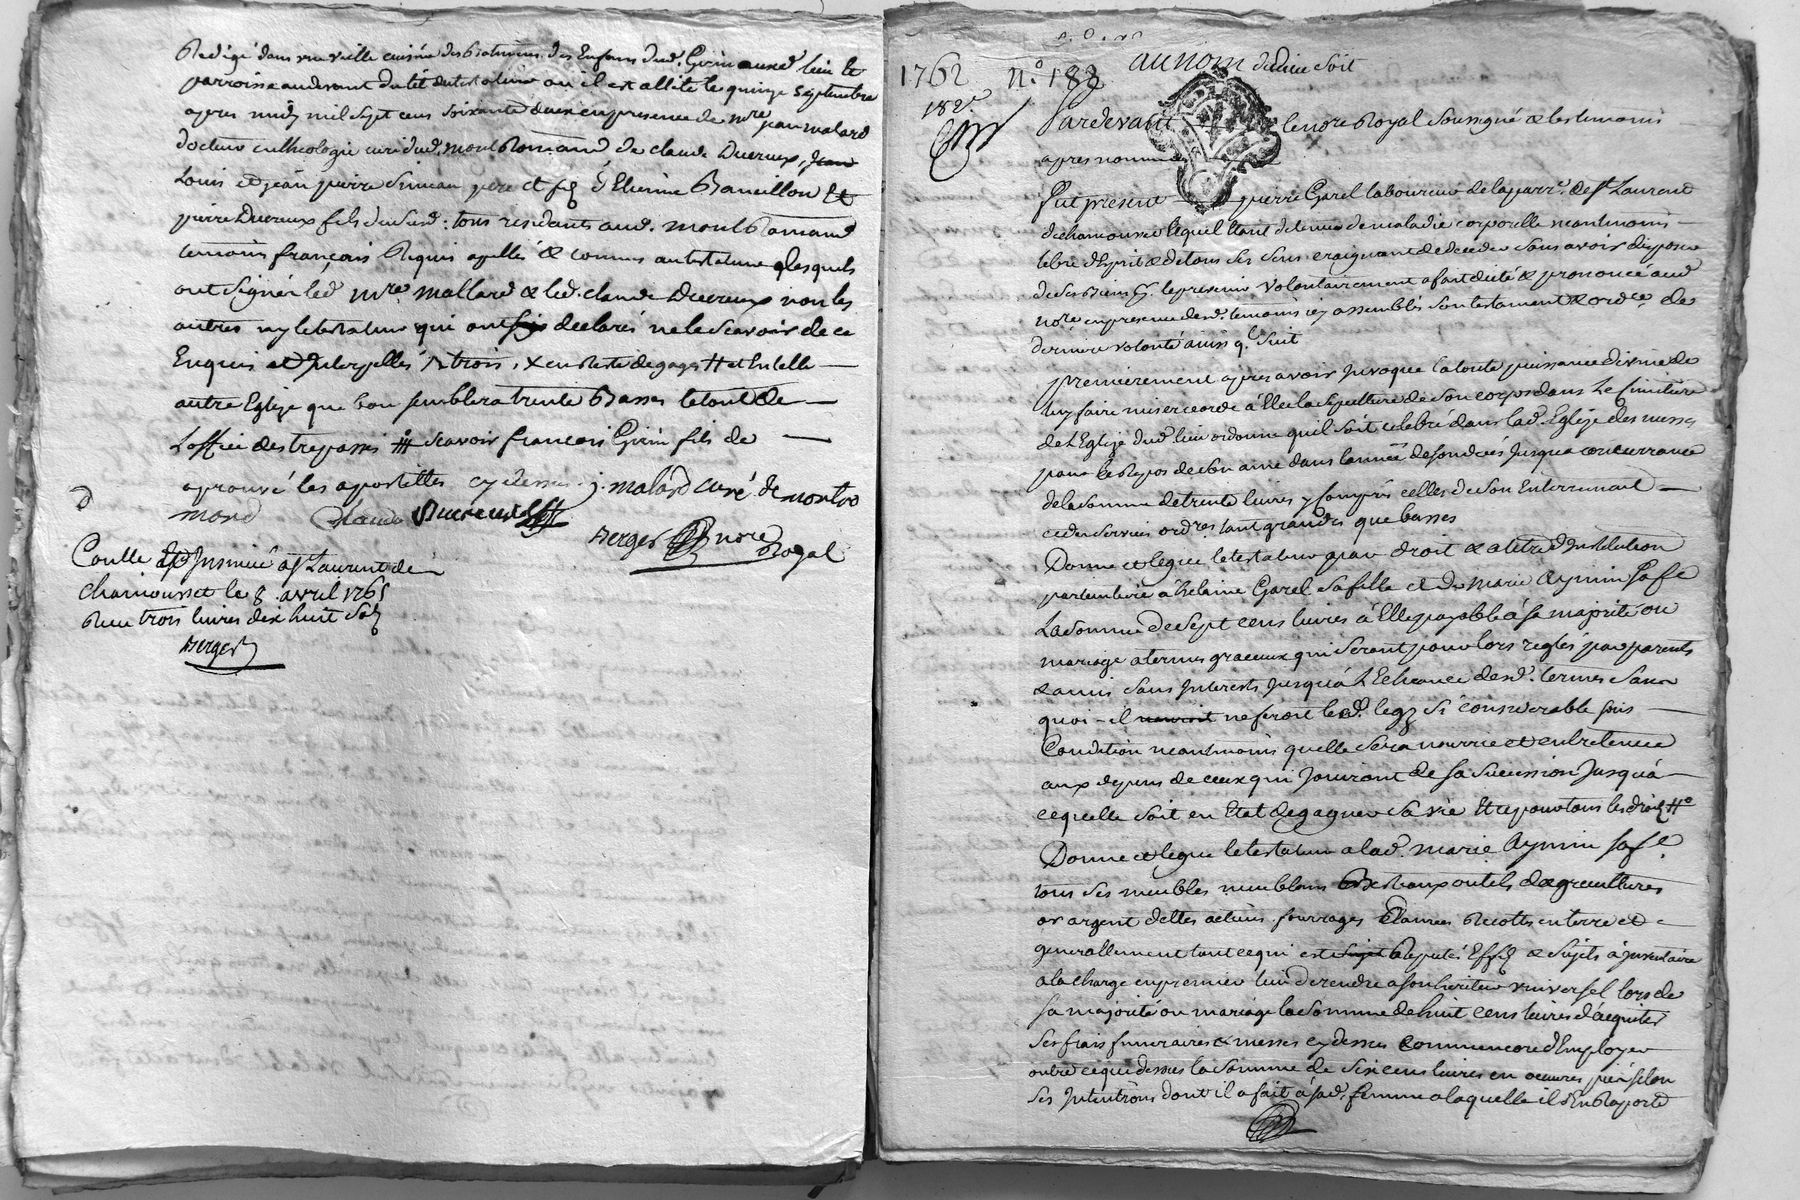 Redigé dans une vielle cuisine des Batimens des Enfans dud. Girin aud. lieu et
parroisse au devant du lit du testateur ou il est allité le quinze septembre
apres midy mil sept cens soixante deux en presence de mre jean malard
docteur en theologie curé dud. mont Romand de claude Ducreux, jean
Louis et jean pierre Simean pere et fils Etienne Bancillon Et
pierre Ducreux fils dud. : tous residants aud. mont Romand
temoins françois Requis apellés & connus au testateur lesquels
ont signé led. mre mallard & led. claude Ducreux non les
autres ny le testateur qui ont declarés ne le scavoir de ce
Enquis et interpellés trois, x en reste de gages # et En telle
autre Eglise que bon semblera trente Basses le tout de
L'office des trepassés # scavoir francois Girin fils de
aprouvé les apostilles cy dessus j. malard curé de montro
mond Claude Ducreux
Berger nore
Royal
Conllé Insinué a St Laurent de
chamousset le 8 avril 1765
Reçu trois livres dix huit sols
Berger
1762 n.° 188 au nom de dieu soit
182.
Pardevant le nore Royal soussigné & les temoins
apres nommés
fut present pierre Garel laboureur de la parr. de St Laurent
de chamousset lequel Etant detenu de maladie corporelle neantmoins
libre d'Esprit & de tous ses sens craignant de deceder sans avoir disposé
de ses Biens le present volontairement a fait dicté & prononcé aud.
nore en presence desd. temoins icy assemblés son testament & ordce de
derniere volonté ainsi q. suit
premierement apres avoir Invoqué la toute puissance divine de
luy faire misericorde à Elleu la sepulture de son corps dans le cimitiere
de L'Eglise dud. lieu ordonne qu'il soit celebré dans lad. Eglise des messes
pour le Repos de son ame dans l'année de son decés Jusqu'a concurrance
de la somme de trente livres y compris celles de son Enterrement
et des services ordres tant grandes que basses
Donne et legue le testateur par droit & a titre d'Institution
particuliere à helaine Garel sa fille et de marie Aymin sa fe
La somme de sept cens livres à Elle payable à sa majorité ou
mariage a termes gracieux qui seront pour lors reglés par parents
& amis sans Interests Jusqu'à L'Echeance desd. termes sans
quoi - il ne feroit led. legz si considerable sous
Condition neantmoins quelle sera nourrie et entretenue
aux depens de ceux qui Jouiront de sa succession Jusqu'à
ce quelle soit en Etat de gagner sa vie Et ce pour tous les droits #
Donne et legue le testateur a lad. marie Aymin sa fe.
tous ses meubles meublans Bestiaux outils d'agricultures
or argent dettes actives fourrages Danrées Recoltes en terre et
generallement tout ce qui est Reputés Effets & sujets à Inventaire
a la charge en premier lieu de rendre a son heritier universel lors de
sa majorité ou mariage la somme de huit cens livres d'acquiter
ses frais funeraires & messes cy dessus comme encore d'Employer
outre ce que dessus la somme de six cens livres en oeuvres pies selon
ses Intentions dont il a fait à sad. femme a laquelle il s'En Raporte